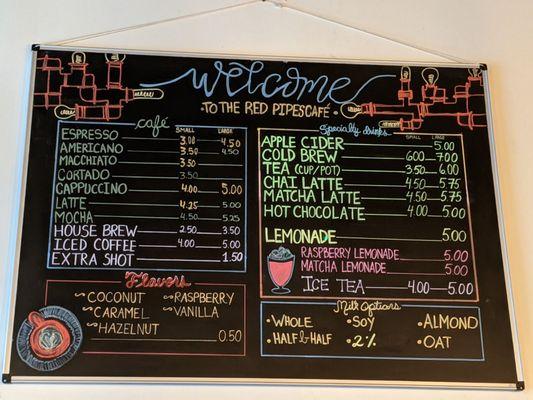 Welcome
TO THE RED PIPES CAFÉ
café
SMALL LARGE
ESPRESSO 3.00
AMERICANO 3.50 4.50
MACCHIATO 3.50
CORTADO 3.50
CAPPUCCINO 4.00 5.00
LATTE 4.25 5.00
MOCHA 4.50 5.25
HOUSE BREW 2.50 3.50
ICED COFFEE 4.00 5.00
EXTRA SHOT 1.50
Flavors
~COCONUT ~RASPBERRY
~CARAMEL ~VANILLA
~HAZELNUT 0.50
Specialty drinks
SMALL LARGE
APPLE CIDER 5.00
COLD BREW 6.00 7.00
TEA (CUP/POT) 3.50 6.00
CHAI LATTE 4.50 5.75
MATCHA LATTE 4.50 5.75
HOT CHOCOLATE 4.00 5.00
LEMONADE 5.00
RASPBERRY LEMONADE 5.00
MATCHA LEMONADE 5.00
ICE TEA 4.00 5.00
Milk Options
•WHOLE •SOY •ALMOND
•HALF & HALF •2% •OAT